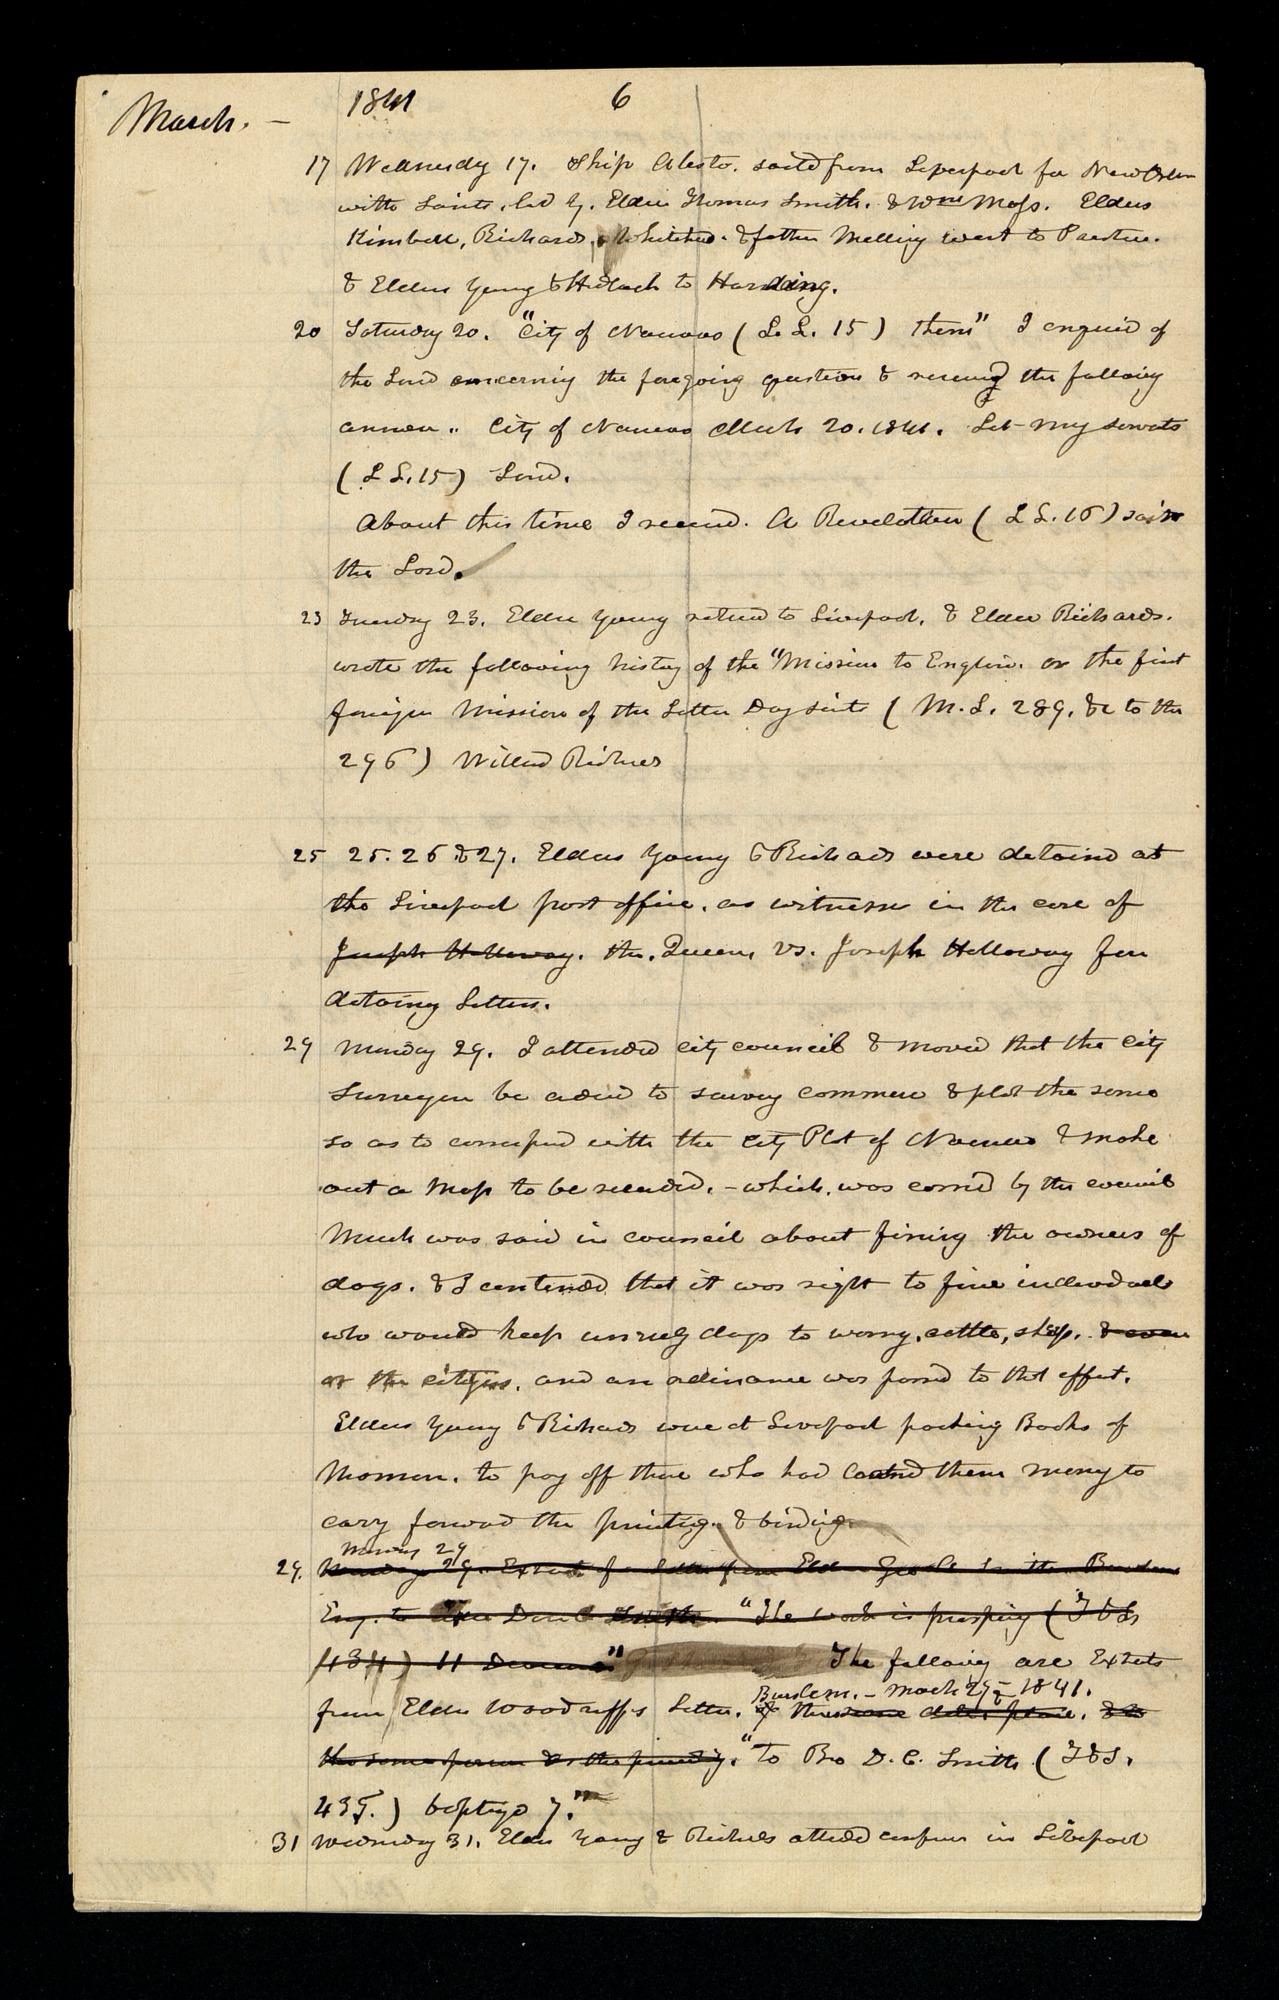 March. – 1841 6
17 Wednesdy 17. Ship Alesto. saild from Liverpool for New Orlen
with Saints, led by. Elder Thomas Smith. & Wm Moss. Elders
Kimball, Richards, & Whitehed. & father Melling went to Preston.
& Elders Young & Hedlock to Harding.
20 Saturday 20. "City of Nauvoo (L. L. 15) them" I enquird of
the Lord concernig the foregoing question & receivd the followig
answer.. City of Nauvoo March 20. 1841. Let my servats
(L L. 15) Lord.
About this time I receivd. A Revelation (L L. 16) saith
the Lord.
23 Tuesday 23. Elder Young returd to Liverpool, & Elder Richards.
wrote the following histoy of the "Mission to Englan. or the first
foreign Mission of the Latter Day saints (M. S. 289. &c to the
296) Willard Richards
25 25. 26 & 27. Elders Young & Richads were detaind at
the Liverpool post office. as witnesses in the case of
Joseph Holloway. the. Queen, vs. Joseph Holloway for
detaing Letters.
29 Monday 29. I attended city council & moved that the city
Surveyor be adised to survey commerce & plot the same
so as to correspnd with the city Plot of Nauvoo & make
out a Map to be recorded. – which. was carrid by the council
Much was said in council about finig the owners of
dogs. & I contended that it was right to fine individuals
who would keep unruly dogs to worry, cattle, sheep. & even
or the citizens. and an ordinance was passd to that effect.
Elders Young & Richads were at Liverpool packing Books of
Mormon. to pay off those who had loand them money to
cary forwad the printig. & bindig.
Monday 29
29. Monday 29. Extract of a Letter from Elder Geo A Smith. Burslem
Eng. to Elder Don C Smith. "The work is prospig (T & S
434) 11 Deacons" The followig are Extcts
Burslem. – March 29 – 1841.
from Elder Woodruffs Letter. of the same date & place. & to
the same person as the precedig. "To Bro D. C. Smith (T & S.
435.) baptizd 7."
31 Wednesdy 31. Elder Young & Richads attedd confern in Liverpool